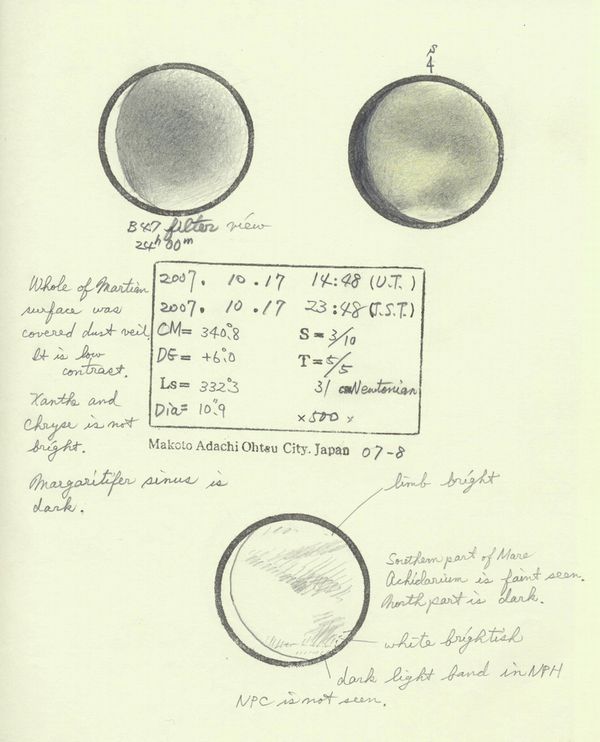 S
B47 filter view
24h 00m
Whole of Martian
surface was
covered dust veil.
It is low
contrast.
Xanthe and
Chryse is not
bright.
Margaritifer sinus is
dark.
2007. 10. 17 14:48 (U.T.)
2007. 10. 17 23:48 (J.S.T.)
CM= 340°.8 S= 3/10
DE= +6°.0 T= 5/5
Ls= 332°.3 31 cm Newtonian
Dia= 10".9 ×500 ×
Makoto Adachi Ohtsu City. Japan 07-8
limb bright
Sorthern part of Mare
Achidarium is faint seen.
North part is dark.
white brightish
dark light band in NPH
NPC is not seen.